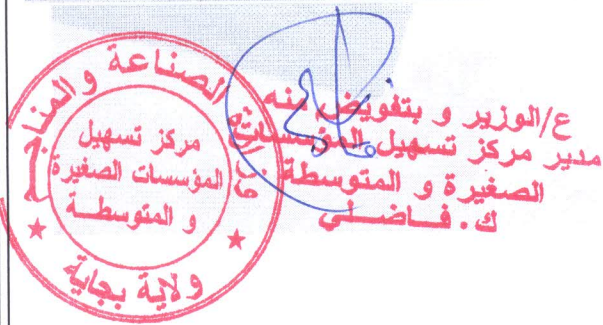 وزارة الصناعة و المناجم
مركز تسهيل
المؤسسات الصغيرة
و المتوسطة
ولاية بجاية
ع/الوزير و بتفويض منه
مدير مركز تسهيل المؤسسات
الصغيرة و المتوسطة
ك. فاضلي